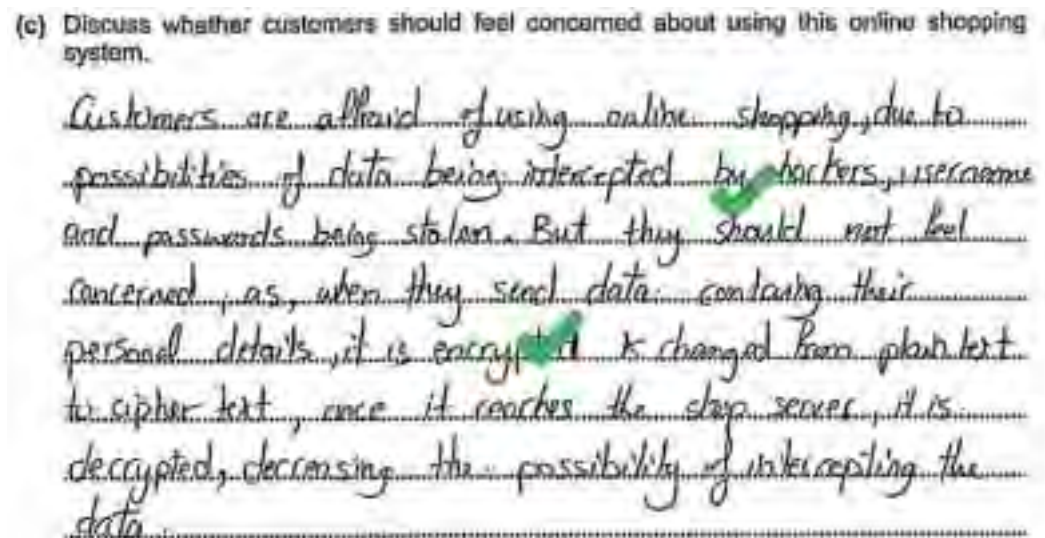 (c) Discuss whether customers should feel concerned about using this online shopping
system.
Customers are affraid of using online shopping, due to
possibilities of data being intercepted by hackers, username
and passwords being stolen. But they should not feel
concerned, as, when they send data containg their
personal details, it is encrypted & changed from plain text
to cipher text, once it reaches the shop server, it is
decrypted, decreasing the possibility of intercepting the
data.